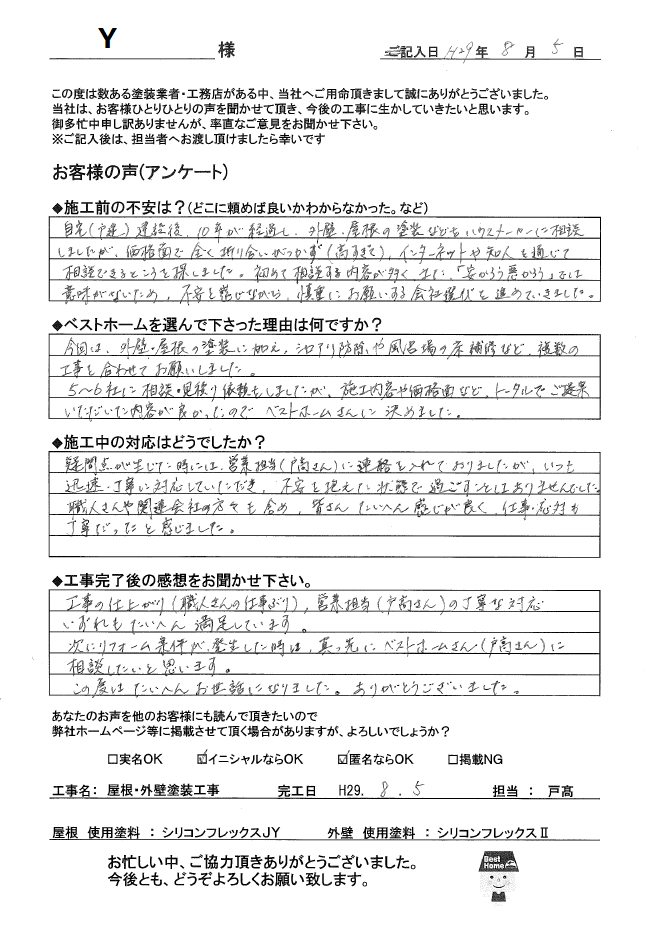 Y 様 ご記入日 H29 年 8 月 5 日
この度は数ある塗装業者・工務店がある中、当社へご用命頂きまして誠にありがとうございました。
当社は、お客様ひとりひとりの声を聞かせて頂き、今後の工事に生かしていきたいと思います。
御多忙中申し訳ありませんが、率直なご意見をお聞かせ下さい。
※ご記入後は、担当者へお渡し頂けましたら幸いです
お客様の声(アンケート)
◆施工前の不安は？(どこに頼めば良いかわからなかった。など)
自宅(戸建)建設後、10年が経過し、外壁・屋根の塗装などをハウスメーカーに相談
しましたが、価格面で全く折り合いがつかず(高すぎて)、インターネットや知人を通じて
相談できるところを探しました。初めて相談する内容が多く、また、「安かろう悪かろう」では
意味がないため、不安を感じながら、慎重にお願いする会社選びを進めていきました。
◆ベストホームを選んで下さった理由は何ですか？
今回は、外壁・屋根の塗装に加え、シロアリ防除や風呂場の床補修など、複数の
工事を合わせてお願いしました。
5～6社に相談・見積り依頼をしましたが、施工内容や価格面など、トータルでご提案
いただいた内容が良かったので ベストホームさんに決めました。
◆施工中の対応はどうでしたか？
疑問点が生じた時には、営業担当(戸高さん)に連絡を入れておりましたが、いつも
迅速・丁寧に対応していただき、不安を抱えた状態で過ごすことはありませんでした。
職人さんや関連会社の方々も含め、皆さんたいへん感じが良く、仕事・応対も
丁寧だったと感じました。
◆工事完了後の感想をお聞かせ下さい。
工事の仕上がり(職人さんの仕事ぶり)、営業担当(戸高さん)の丁寧な対応
いずれもたいへん満足しています。
次にリフォーム案件が発生した時は、真っ先にベストホームさん(戸高さん)に
相談したいと思います。
この度はたいへんお世話になりました。ありがとうございました。
あなたのお声を他のお客様にも読んで頂きたいので
弊社ホームページ等に掲載させて頂く場合がありますが、よろしいでしょうか？
□実名OK ☑イニシャルならOK ☑匿名ならOK □掲載NG
工事名： 屋根・外壁塗装工事 完工日 H29. 8 . 5 担当 ： 戸髙
屋根 使用塗料 ： シリコンフレックスJY 外壁 使用塗料 ： シリコンフレックスⅡ
お忙しい中、ご協力頂きありがとうございました。
今後とも、どうぞよろしくお願い致します。
Best
Home